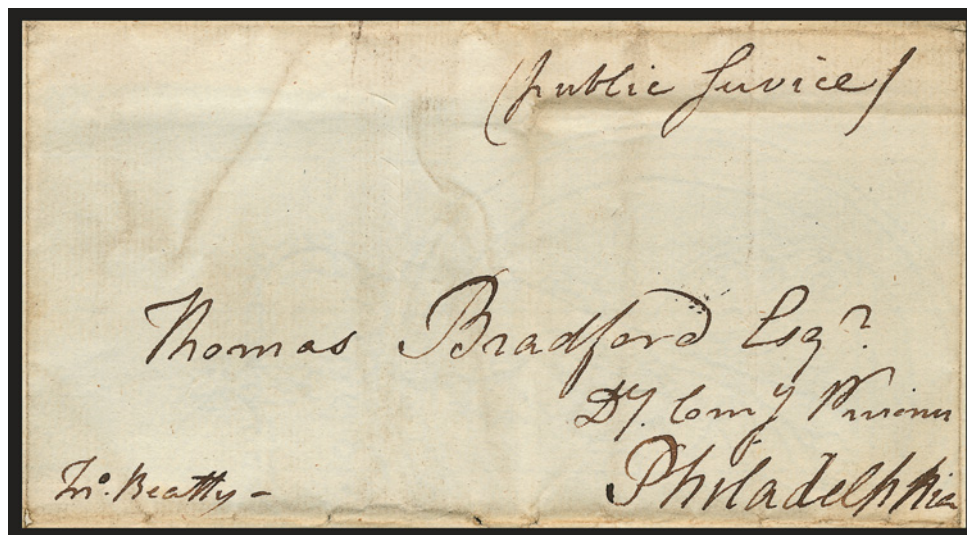 (public Service)
Thomas Bradford Esqr.
Dy. Comy Prisoners
Philadelphia
Jno. Beatty -